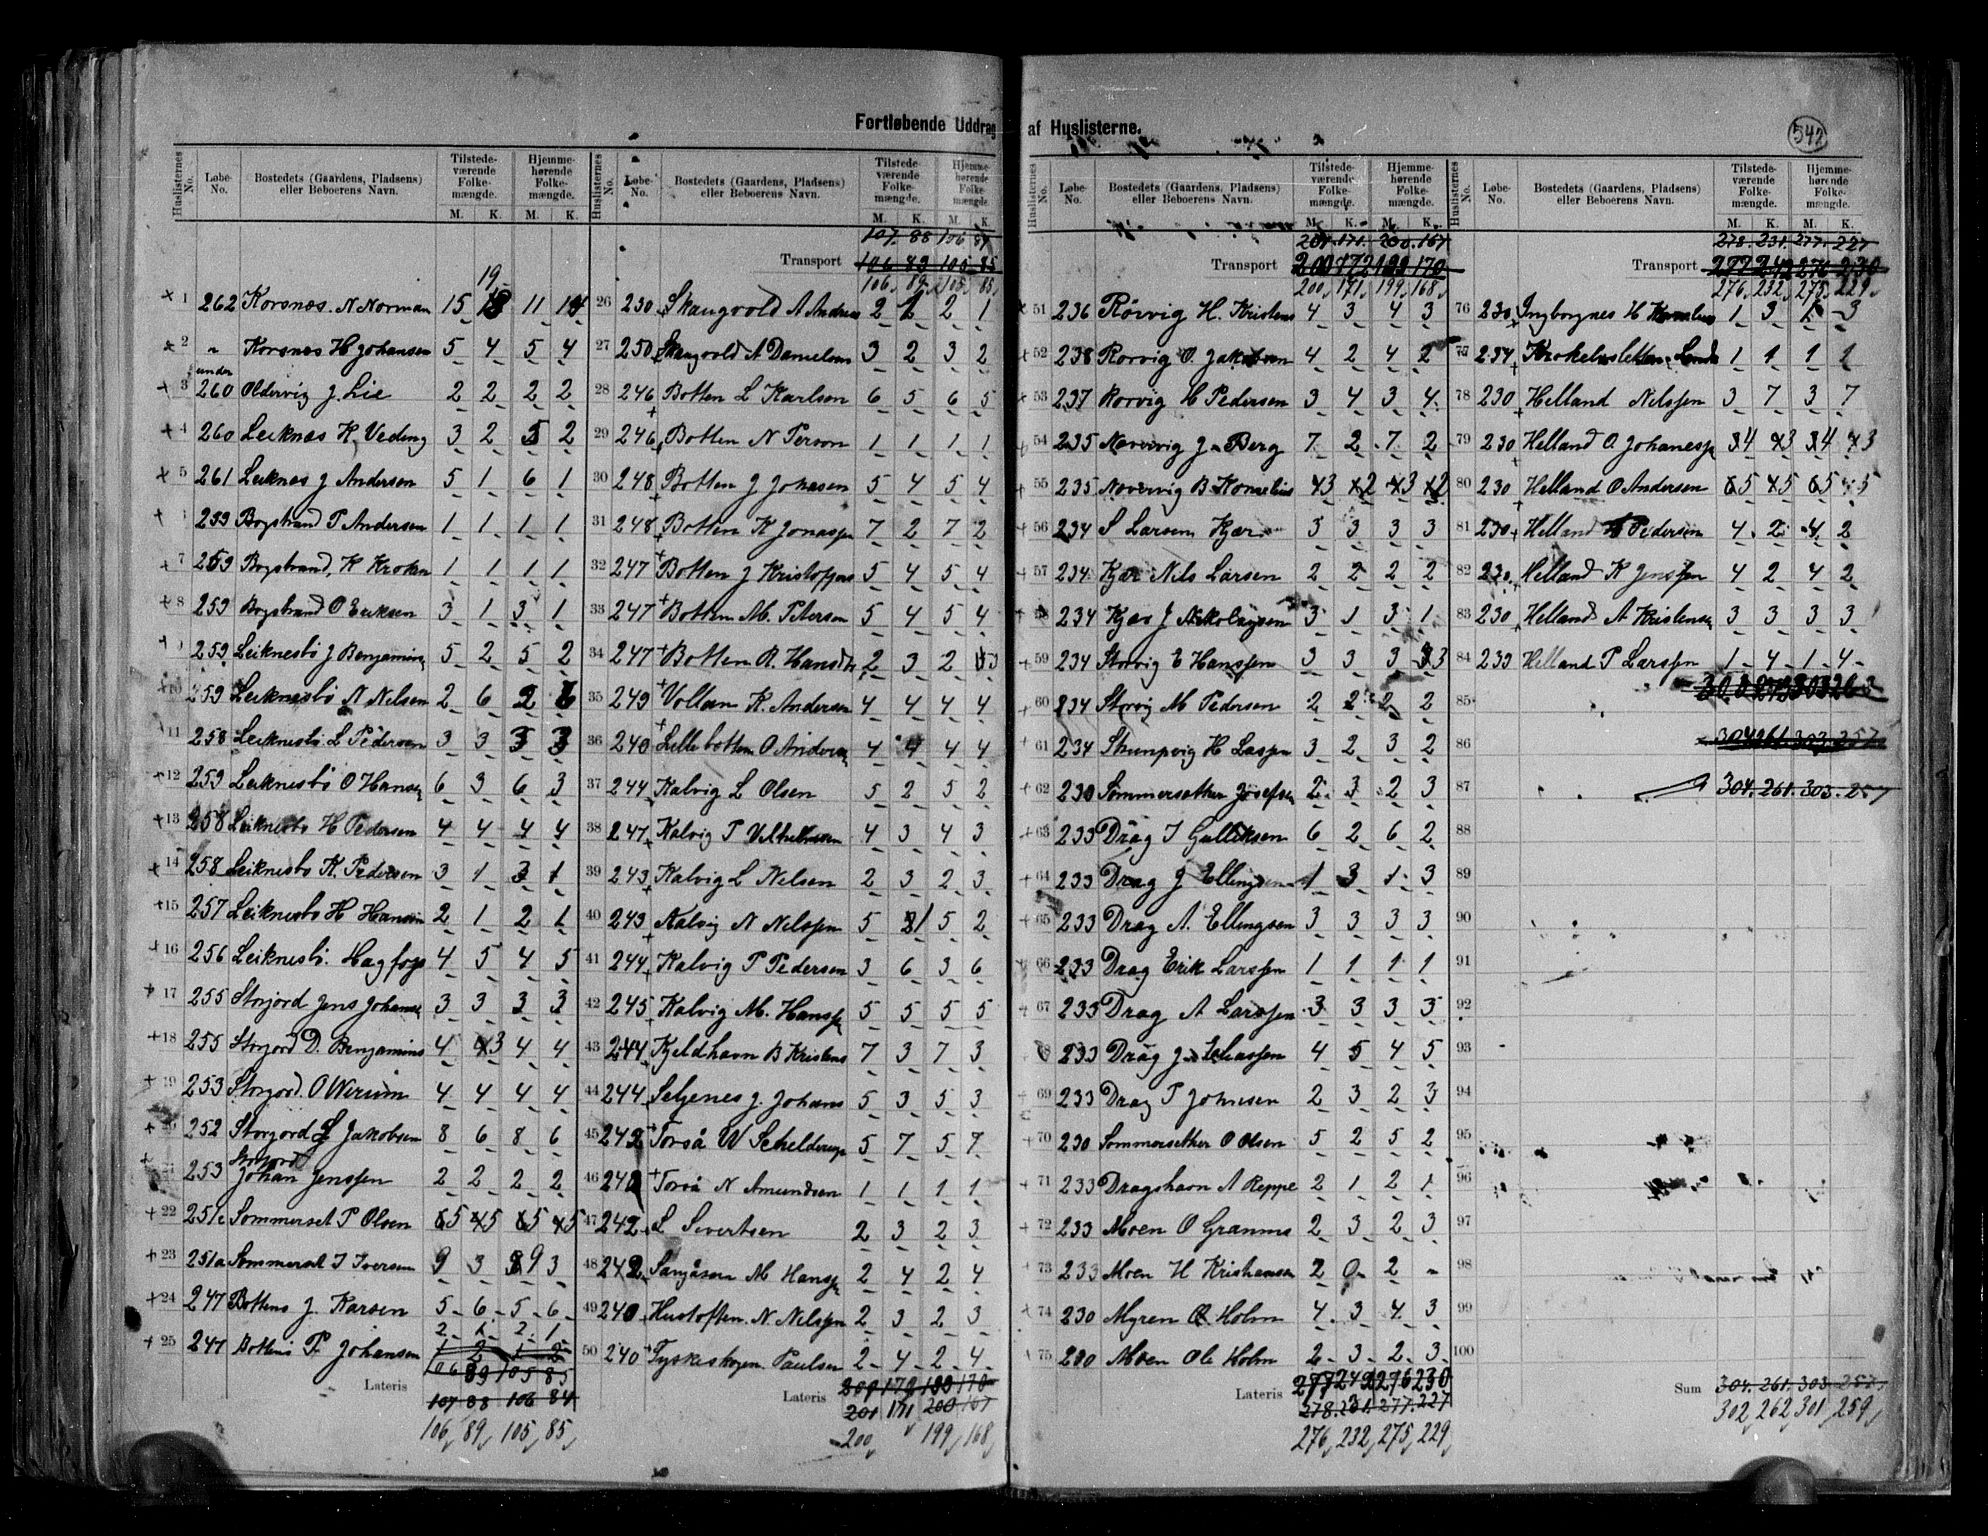 Fortløbende Uddrag af Huslisterne.
542
Huslisternes No. Løbe-No. Bostedets (Gaardens, Pladsens) eller Beboerens Navn. Tilstedeværende Folkemængde. M. K. Hjemmehørende Folkemængde. M. K.
1 262 Korsnæs. N Norman 15 19 11
2 " Korsnæs H Johansen 5 4 5 4
3 under 260 Oldervig J. Lie 2 2 2 2
4 260 Leiknæs K. Veding 3 2 5 2
5 261 Leiknes J Andersen 5 1 6 1
259 Bogstrand P Andersen 1 1 1 1
7 259 Bogstrand, K Kroken 1 1 1 1
8 259 Bogstrand O Eriksen 3 1 3 1
259 Leiknesbö J Benjamins 5 2 5 2
10 259 Leiknesbö N Nilsen 2 6 2 6
11 258 Leiknesbö L Pedersen 3 3 3 3
12 259 Leiknesbö O Hansen 6 3 6 3
13 258 Leiknesbö H Pedersen 4 4 4 4
14 258 Leiknesbö K. Pedersen 3 1 3 1
15 257 Leiknesbö H Hansen 2 1 2 1
16 256 Leiknesbö. Hag 4 5 4 5
17 255 Storjord Jens Johanse 3 3 3 3
18 255 Storjord D. Benjamins 4 3 4 4
19 253 Storjord. O Werium 4 4 4 4
20 252 Storjord Jakobsen 8 6 8 6
21 253 Storjord Johan Jenssen 2 2 2 2
22 251c Sommerset P Olsen 5 5 5 5
23 251a Sommerset I Iversen 9 3 9 3
24 247 Bottens J. Karsen 5 6 5 6
2 1 2 1
25 247 Bottens P. Johansen 1 2 1 2
106 89 105 85
Lateris
107 88 106 84
106 89 105 85
Huslisternes No. Løbe-No. Bostedets (Gaardens, Pladsens) eller Beboerens Navn. Tilstedeværende Folkemængde. M. K. Hjemmehørende Folkemængde. M. K.
107. 88 106 84
Transport 106 89 105 85
106 89 105 85
26 250 Skaugvold A Andreas 2 1 2 1
27 250 Skaugvold A Danielsen 3 2 3 2
28 246 Botten L Karlsen 6 5 6 5
29 246 Botten N Person 1 1 1 1
30 248 Botten J Johasen 5 4 5 4
31 248 Botten K Jonassen 7 2 7 2
32 247 Botten J Kristoffers 5 4 5 4
33 247 Botten M. Peterson 5 4 5 4
34 247 Botten R. Hansdtr 2 3 2 3
35 249 Vollan K. Andersen 4 4 4 4
36 240 Lillebotten O Anderse 4 4 4 4
37 244 Kalvig L Olsen 5 2 5 2
38 247 Kalvig P Vilhelmsen 4 3 4 3
39 243 Kalvig L Nilsen 2 3 2 3
40 243 Kalvig N Nilssen 5 1 5 2
41 244 Kalvig P Pedersen 3 6 3 6
42 245 Kalvig M. Hanssen 5 5 5 5
43 244 Kjeldhavn B Kristens 7 3 7 3
44 244 Seljenes J. Johans 5 3 5 3
45 242 Torså W Schelderup 5 7 5 7
46 242 Torså N Amundsen 1 1 1 1
47 242 L Sivertsen 2 3 2 3
48 242 M Hanssen 2 4 2 4
49 240 Hustoften. N Nilssen 2 3 2 3
50 240 Tyskeskogen Paulsen 2 4 2 4
Lateris 200 172 199 170
201 171 200 167
200 199 168
Huslisternes No. Løbe-No. Bostedets (Gaardens, Pladsens) eller Beboerens Navn. Tilstedeværende Folkemængde. M. K. Hjemmehørende Folkemængde. M. K.
201. 171. 200. 167
Transport 200 172 199 170
200 171 199 168
51 236 Rörvig H. Kristens 4 3 4 3
52 238 Rörvig O. Jakobsen 4 2 4 2
53 237 Rorvig H Pedersen 3 4 3 4
54 235 Nævervig J Berg 7 2 7 2
55 235 Nævervig B Kornelius 3 2 3 2
56 234 S Larsen Kjær 3 3 3 3
57 234 Kjær Nils Larsen 2 2 2 2
58 234 Kjær J Nikolaysen 3 1 3 1
59 234 Storvig E Hanssen 3 3 3 3
60 234 Storvig M Pedersen 2 2 2 2
61 234 Strumpvig H Lassen 3 2 3 2
62 230 Sommersether Josefsen 2 3 2 3
63 233 Drag I Gulliksen 6 2 6 2
64 233 Drag J Ellingsen 1 3 1 3
65 233 Drag A. Ellingsen 3 3 3 3
66 233 Drag Erik Larssen 1 1 1 1
67 233 Drag A Larssen 3 3 3 3
68 233 Drag J. Eliassen 4 5 4 5
69 233 Drag P Johnsen 2 3 2 3
70 230 Sommersether O Olsen 5 2 5 2
71 233 Dragshavn A Reppe 2 1 2 1
72 233 Moen O Granmo 2 3 2 3
73 233 Moen H Kristiansen 2 0 2 -
74 230 Myren O Holm 4 3 4 3
75 230 Moen Ole Holm 2 3 2 3
Lateris 277 242 276 230
278. 231. 277. 227
276 232 275 229
Huslisternes No. Løbe-No. Bostedets (Gaardens, Pladsens) eller Beboerens Navn. Tilstedeværende Folkemængde. M. K. Hjemmehørende Folkemængde. M. K.
278. 231. 277. 227
Transport 277 242 276 230
276 232 275 229
76 230 Ingborgnes H Kornelius 1 3 1 3
77 234 1 1 1 1
78 230 Helland Nilssen 3 7 3 7
79 230 Helland O. Johanessen 4 3 4 3
80 230 Helland O Andersen 5 5 5 5
81 230 Helland Pedersen 4 2 4 2
82 230 Helland K Jenssen 4 2 4 2
83 230 Helland A Kristensen 3 3 3 3
84 233 Helland P Larssen 1 4 1 4
85 303 263
86 304 261 303 257
87 304. 261. 303. 257
88
89
90
91
92
93
94
95
96
97
98
99
100
Sum 304. 261. 303 257
302 262 301 259